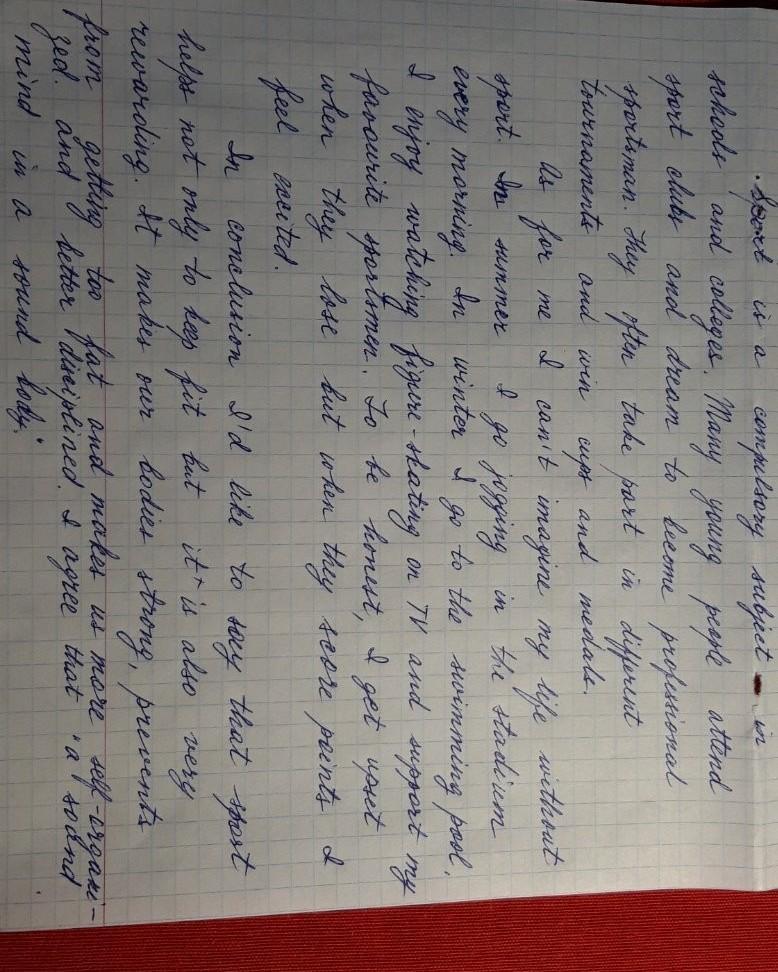 Sport is a compulsory subject in
schools and colleges. Many young people attend
sport clubs and dream to become professional
sportsman. They often take part in different
tournaments and win cups and medals.
As for me I can't imagine my life without
sport. In summer I go jogging in the stadium
every morning. In winter I go to the swimming pool.
I enjoy watching figure-skating on TV and support my
favourite sportsmen. To be honest, I get upset
when they lose but when they score points I
feel excited.
In conclusion I'd like to say that sport
helps not only to keep fit but it is also very
rewarding. It makes our bodies strong, prevents
from getting too fat and makes us more self-organi-
zed. and better disciplined. I agree that "a sound
mind in a sound body."